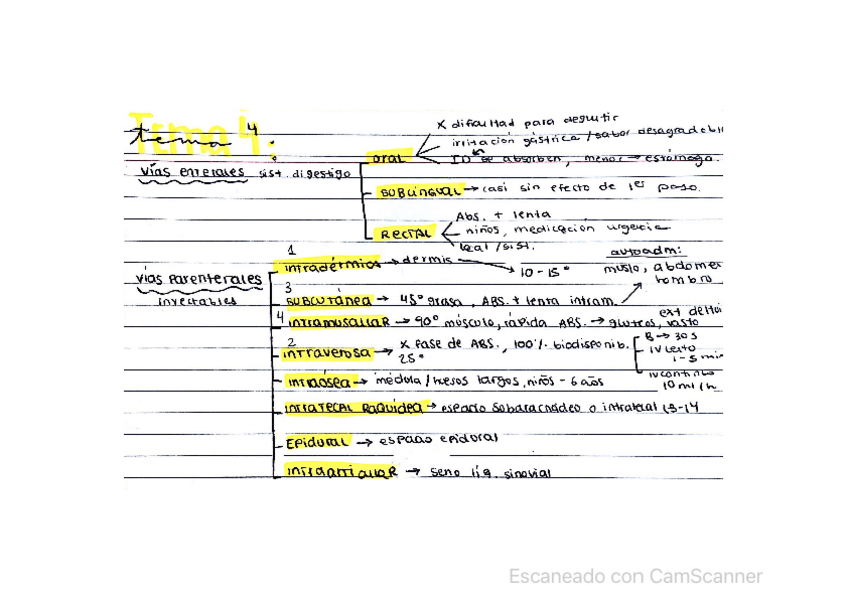 tema 4:
oral
x dificultad para deglutir
irritación gástrica / sabor desagradebl
ID se absorben, menor → estómago.
vías enterales sist. digestivo
SUBLINGUAL → casi sin efecto de 1er paso.
RECTAL
Abs. + lenta
niños, medicación urgencia
local / sist.
vías parenterales
inyectables
1
intradérmica → dermis → 10-15°
autoadm:
muslo, abdomen
hombro
3
SUBCUTÁNEA → 45° grasa, ABS. + lenta intram.
4 intramuscular → 90° músculo, rápida ABS. → gluteos, vasto
ext deltoi
2
intravenosa → x fase de ABS., 100% biodisponib.
25°
B → 30s
IV lento
1-5 min
IV continuo
10 ml/h
intraósea → médula / huesos largos, niños - 6 años
INTRATECAL RAQUÍDEA → espacio subaracnoideo o intratecal L3-L4
EPIDURAL → espacio epidural
intraarticular → seno líq. sinovial
Escaneado con CamScanner